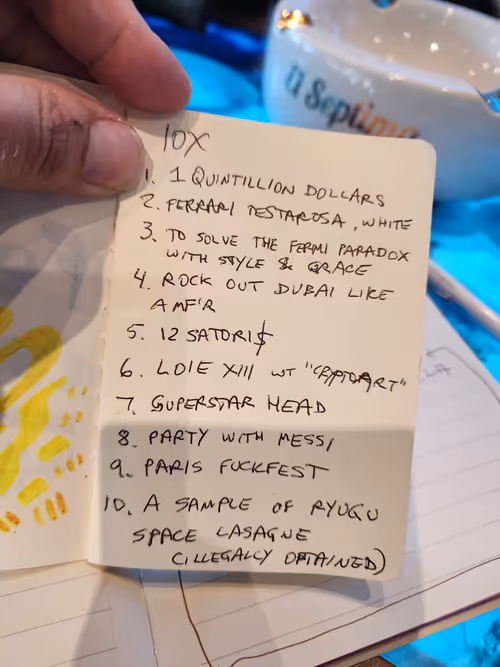 Il Septimo
10X
1. 1 QUINTILLION DOLLARS
2. FERRARI TESTAROSA, WHITE
3. TO SOLVE THE FERMI PARADOX
WITH STYLE & GRACE
4. ROCK OUT DUBAI LIKE
A MF'R
5. 12 SATORI$
6. LOIE XIII WT "CRYPTOART"
7. SUPERSTAR HEAD
8. PARTY WITH MESSI
9. PARIS FUCKFEST
10. A SAMPLE OF RYUGU
SPACE LASAGNE
(ILLEGALLY OBTAINED)